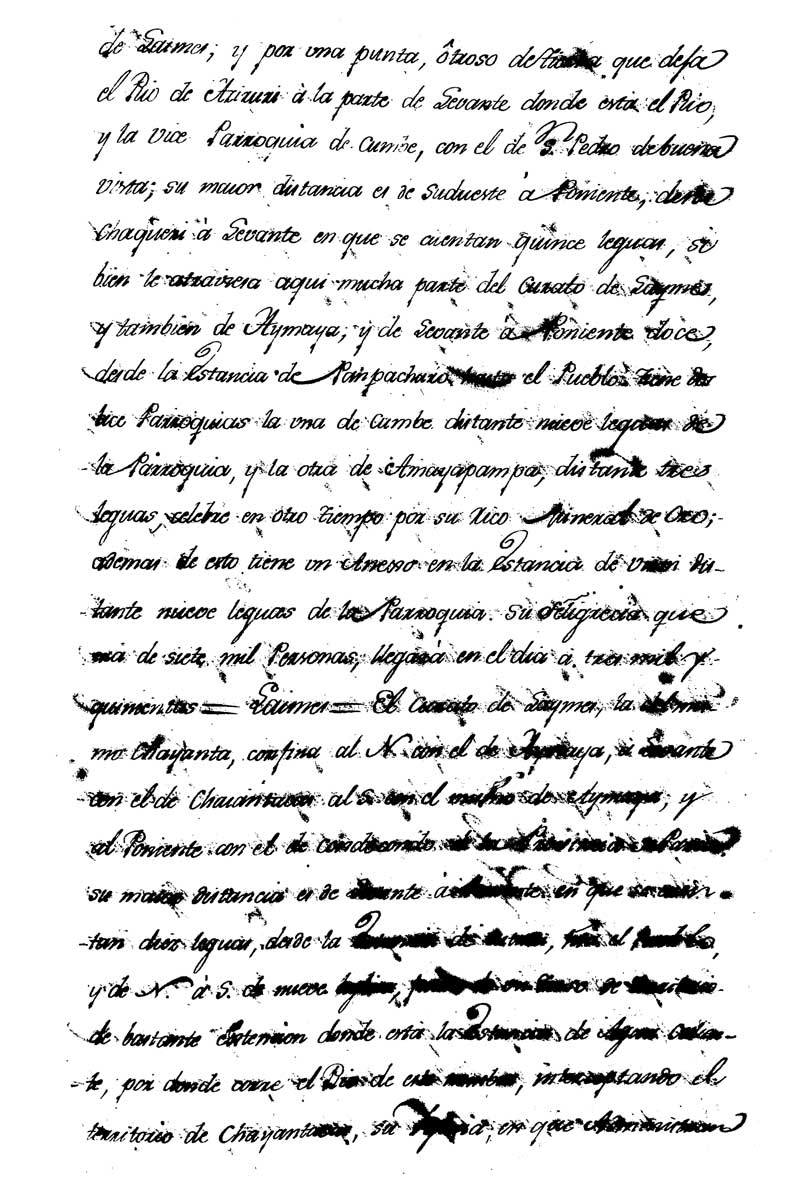 de Laimes, y por una punta, ôtroso de tierra que defa
el Rio de Atizuri à la parte de Levante donde esta el Rio,
y la Vice Parroquia de Cumbe, con el de S. Pedro de buena
vista; su maior distancia es de Sudueste à Poniente, desde
Chaqueri à Levante en que se cuentan quince leguas, si
bien le atraviesa aqui mucha parte del Curato de Laymes,
y tambien de Aymaya, y de Levante à Poniente doce,
desde la Estancia de Panpacharo hasta el Pueblo. tiene dos
vice Parroquias la una de Cumbe distante nueve leguas de
la Parroquia, y la otra de Amayapampa, distante tres
leguas, celebre en otro tiempo por su Rico Mineral de Oro;
ademas de esto tiene un Anexo en la Estancia de dis-
tante nueve leguas de la Parroquia. Su feligrecia que
era de siete mil Personas, llegará en el dia à tres mil y
quinientas = Laimes = El Curato de Laymes, la del mis-
mo Chayanta, confina al N. con el de Aymaya, à Levante
con el de Chaiantacas al S. con el mismo de Aymaya, y
al Poniente con el de Condocondo de la Provincia de Paria.
su maior distancia es de Levante à Poniente en que se cuen-
tan diez leguas, desde la Estancia de hta el Pueblo,
y de N. à S. de nueve de un de
de bastante Extencion donde esta la Estancia de Agua Calien-
te, por donde corre el Rio de este nombre, interceptando el
territorio de Chayantacas, su Yglesia, en que Administran